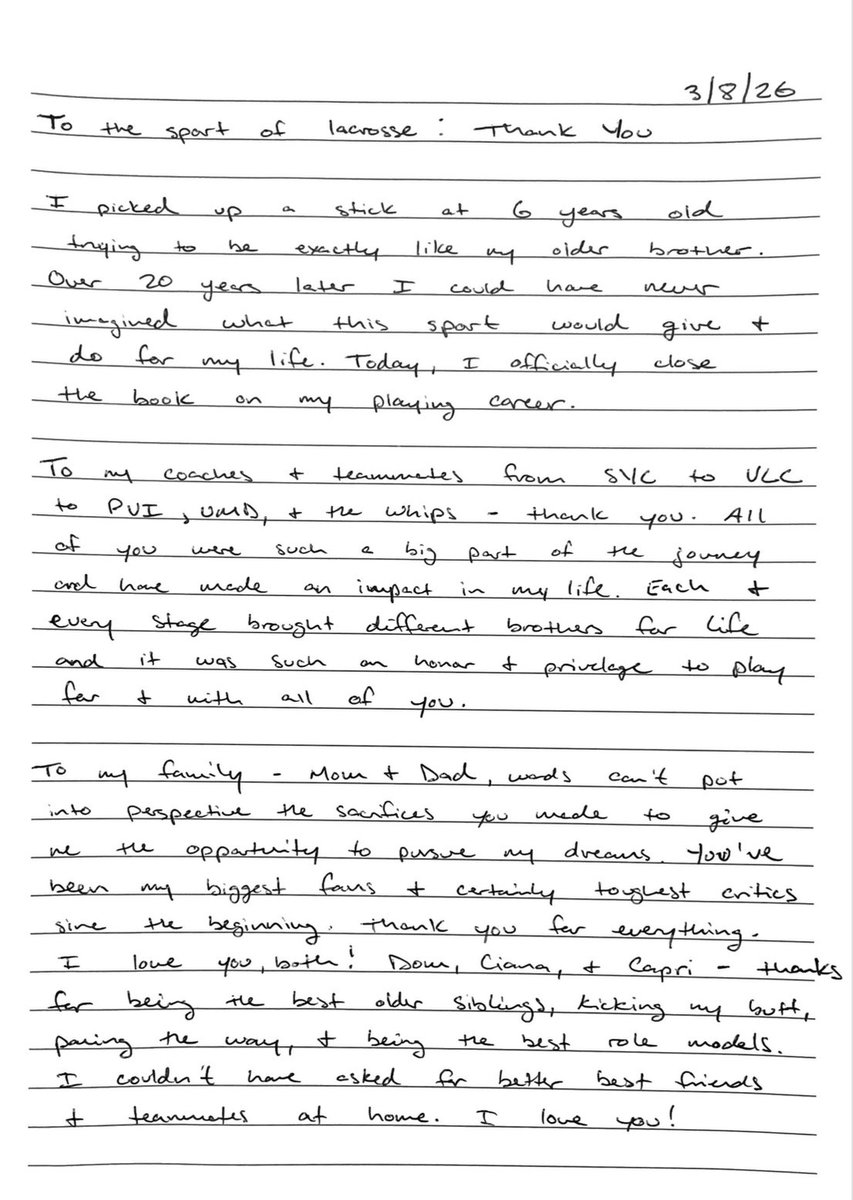 3/8/26
To the sport of lacrosse: Thank You
I picked up a stick at 6 years old
trying to be exactly like my older brother.
Over 20 years later I could have never
imagined what this sport would give +
do for my life. Today, I officially close
the book on my playing career.
To my coaches + teammates from SYC to VLC
to PVI, UMD, + the Whips - thank you. All
of you were such a big part of the journey
and have made an impact in my life. Each +
every stage brought different brothers for life
and it was such an honor + privelage to play
for + with all of you.
To my family - Mom + Dad, words can't put
into perspective the sacrifices you made to give
me the opportunity to pursue my dreams. You've
been my biggest fans + certainly toughest critics
sine the beginning. Thank you for everything.
I love you, both! Dom, Ciana, + Capri - thanks
for being the best older siblings, kicking my butt,
paving the way, + being the best role models.
I couldn't have asked for better best friends
+ teammates at home. I love you!